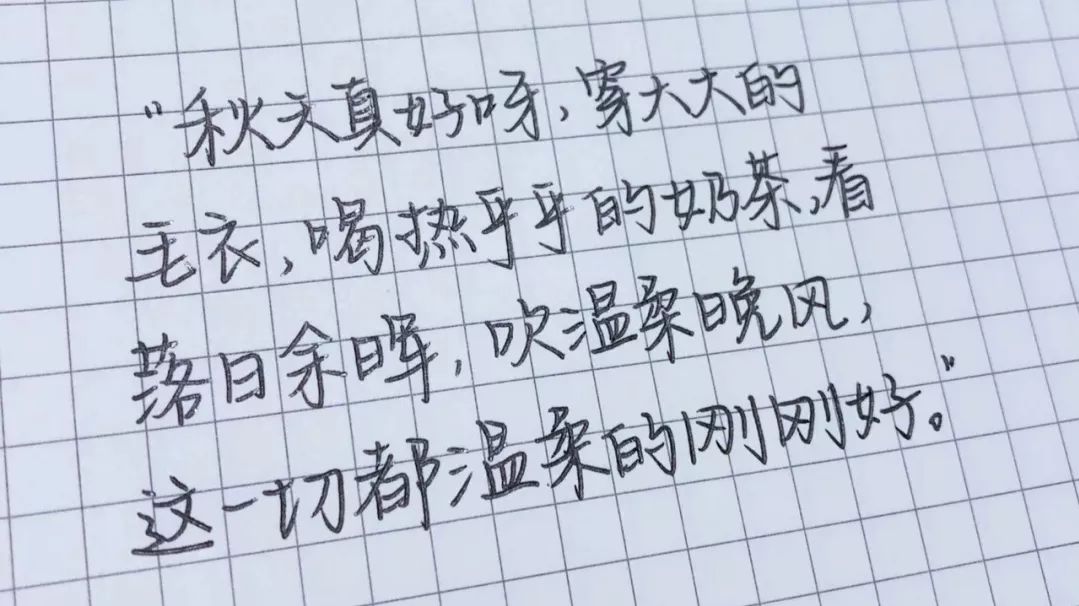 “秋天真好呀，穿大大的
毛衣，喝热乎乎的奶茶，看
落日余晖，吹温柔晚风，
这一切都温柔的刚刚好。”